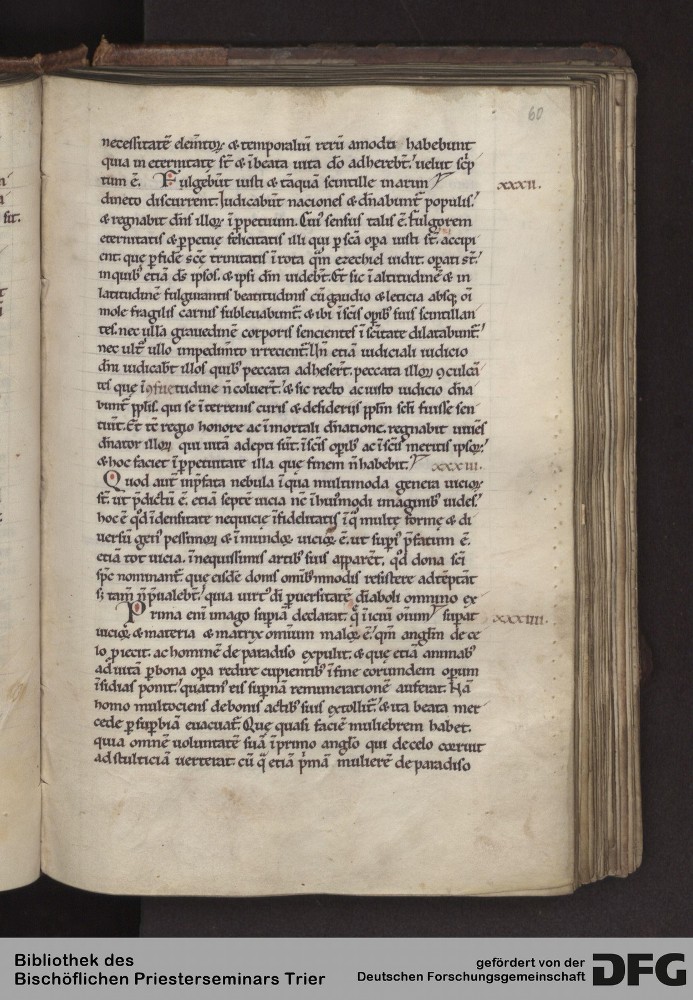 60
necessitatē elem̄toꝝ & temporaliū rerū amodo habebunt
quia in eternitatę st̄ & ī beata uita dō adherebt̄. uelut sc̄p
tum ē. Fulgebūt iusti & tāquā scintille in arun
dineto discurrent. Iudicabūt naciones & dn̄abunt̄ populis.
& regnabit dn̄s illoꝝ ī ꝑpetuum. Cui᷒ sensus talis ē. fulgorem
xxxii.
eternitatis & ꝑpetuę felicitatis illi qui ꝑ sc̄a opa iusti st̄. accipi
ent. quę ꝑ fidē sc̄ę trinitatis ī rota qͣm ezechiel uidit. opati st̄.
in quib; etiā ds̄ ipsos. & ipsi dm̄ uidebt̄. Et sic ī altitudinē & in
latitudinē fulgurantis beatitudinis cū gaudio & leticia absq; oī
mole fragilis carnis subleuabunt̄. & ibi ī sc̄is opib; suis scintillan
tes. nec ulla grauedinē corporis sencientes ī sc̄itate dilatabunt̄.
nec ult᷒ ullo impedim̄to irrecient̄. Un̄ etiā iudiciali iudicio
dn̄i iudicabt̄ illos quib; peccata adhesert̄. peccata illoꝝ ꝯculcā
tes que ī ꝯsuetudine n̄ coluert̄. & sic recto ac iusto iudicio dn̄a
bunt̄ pplis. qui se ī terrenis curis & desiderijs pplm̄ scl̄i fuisse sen
tiūt. Et tē regio honore ac ī mortali dn̄atione. regnabit uiuēs
dn̄ator illoꝝ qui uitā adepti sūt. ī sc̄is opib; ac ī sc̄is meritis ipsoꝝ.
& hoc faciet ī ꝑpetuitate illa quę finem n̄ habebit. xxxiii.
Quod aut̄ in p̄fata nebula ī qua multimoda genera uicioꝝ
st̄. ut p̄dictū ē. etiā septē uicia nē ī hui᷒modi imaginib; uides.
hoc ē qd̄ ī densitate nequicię ī fidelitatis ī q̄ multę formę & di
uersū gen᷒ pessimoꝝ & ī mundoꝝ uicioꝝ ē. ut supi᷒ p̄fatum ē.
etiā tot uicia. ī nequissimis artib; suis apparēt. qd̄ dona sc̄i
sp̄c nominant̄. que eisdē donis omīb; modis resistere adtēptāt
s; tam̄ n̄ p̄ualebt̄. quia uirt᷒ di ꝑuersitatē diaboli omnino ex
Prima eni imago supiā declarat. q̄ inīciū om̄ium supat
xxxiiii.
uicioꝝ. & materia & matrix omnium maloꝝ ē. qm̄ anglm̄ de ce
lo ꝓiecit. ac hominē de paradiso expulit. & quę etiā animab;
ad uitā ꝑ bona opa redire cupientib; ī fine eorundem operum
ī sidias ponit. quatin᷒ eis supnā remunerationē auferat. Nā
homo multociens de bonis actib; suis extollit̄. & ita beata mer
cede ꝑ supbiā euacuat̄. Que quasi faciē muliebrem habet.
quia omnē uoluntatē suā ī primo anglo qui de celo corruit
ad stulticiā uerterat. cū q̄ etiā p̄mā mulierē de paradiso
Bibliothek des
Bischöflichen Priesterseminars Trier
gefördert von der
Deutschen Forschungsgemeinschaft
DFG